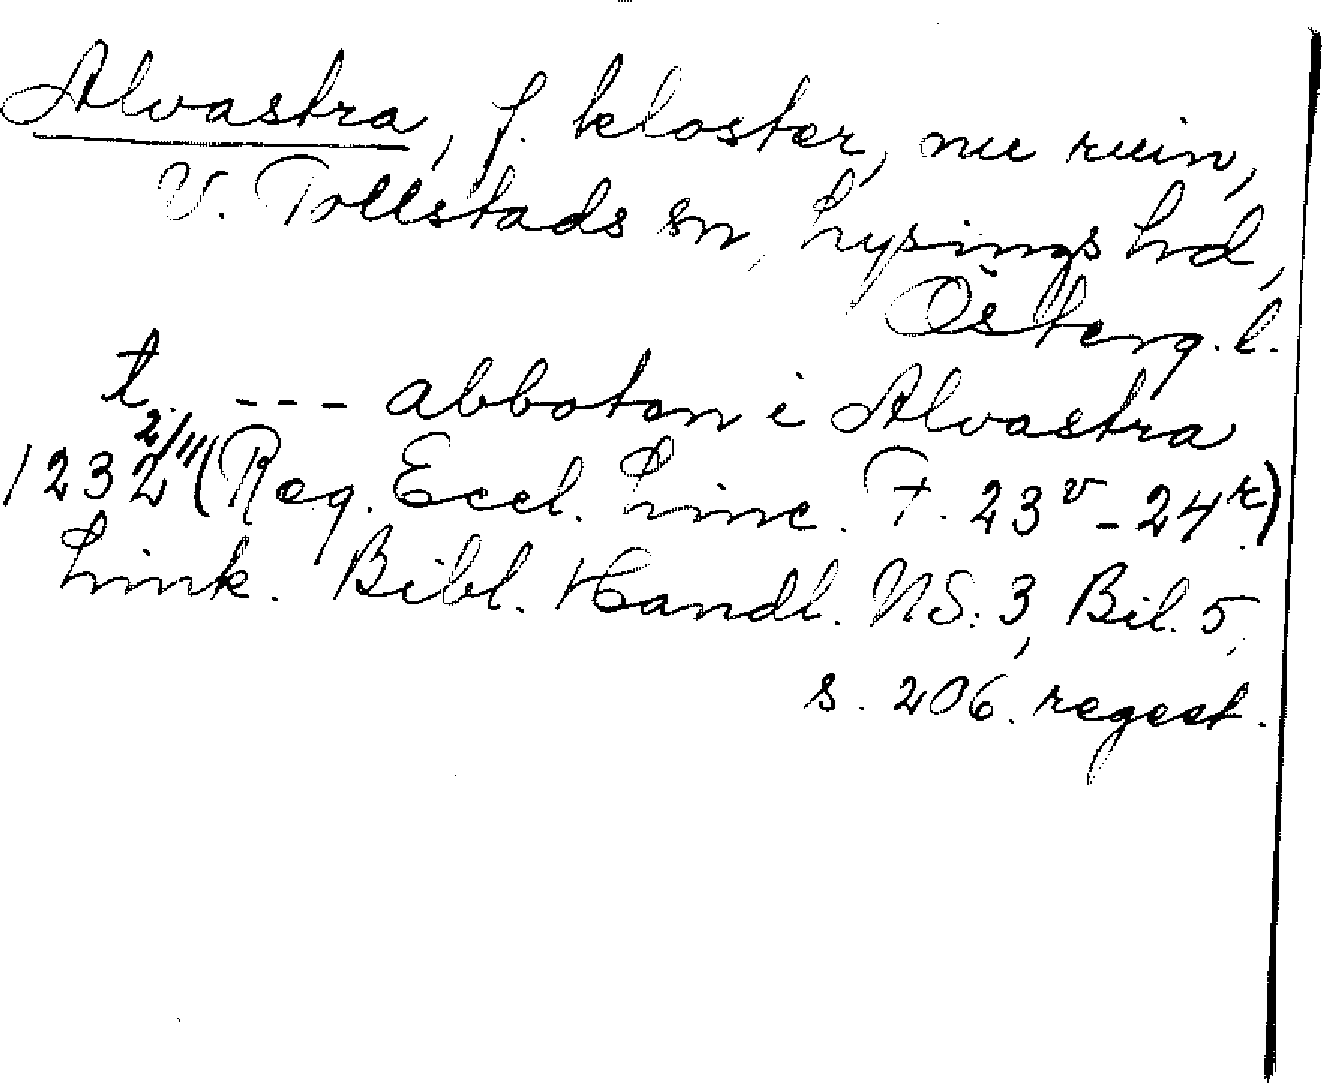 Alvastra, f. kloster, nu ruin,
V. Tollstads sn, Lysings hd,
Österg. l.
t. --- abboten i Alvastra
1232 2/11 (Reg. Eccl. Linc. F. 23v - 24r)
Link. Bibl. Handl. NS: 3, Bil. 5,
s. 206. regest.